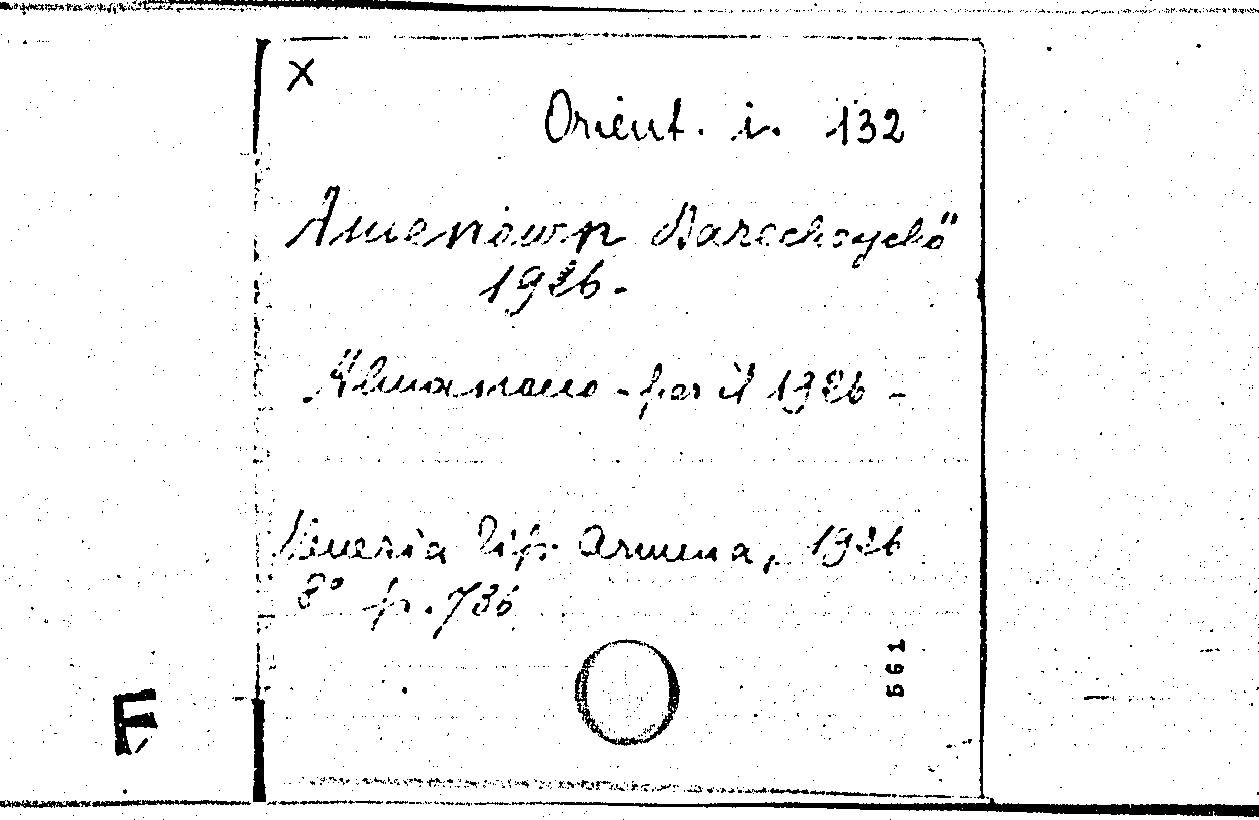 X
Orient. i. 132
Amenown Darechoychö"
1926.
Almanacco - per il 1926 -
Venezia Tip. Armena, 1926
8° p. 736
561
F